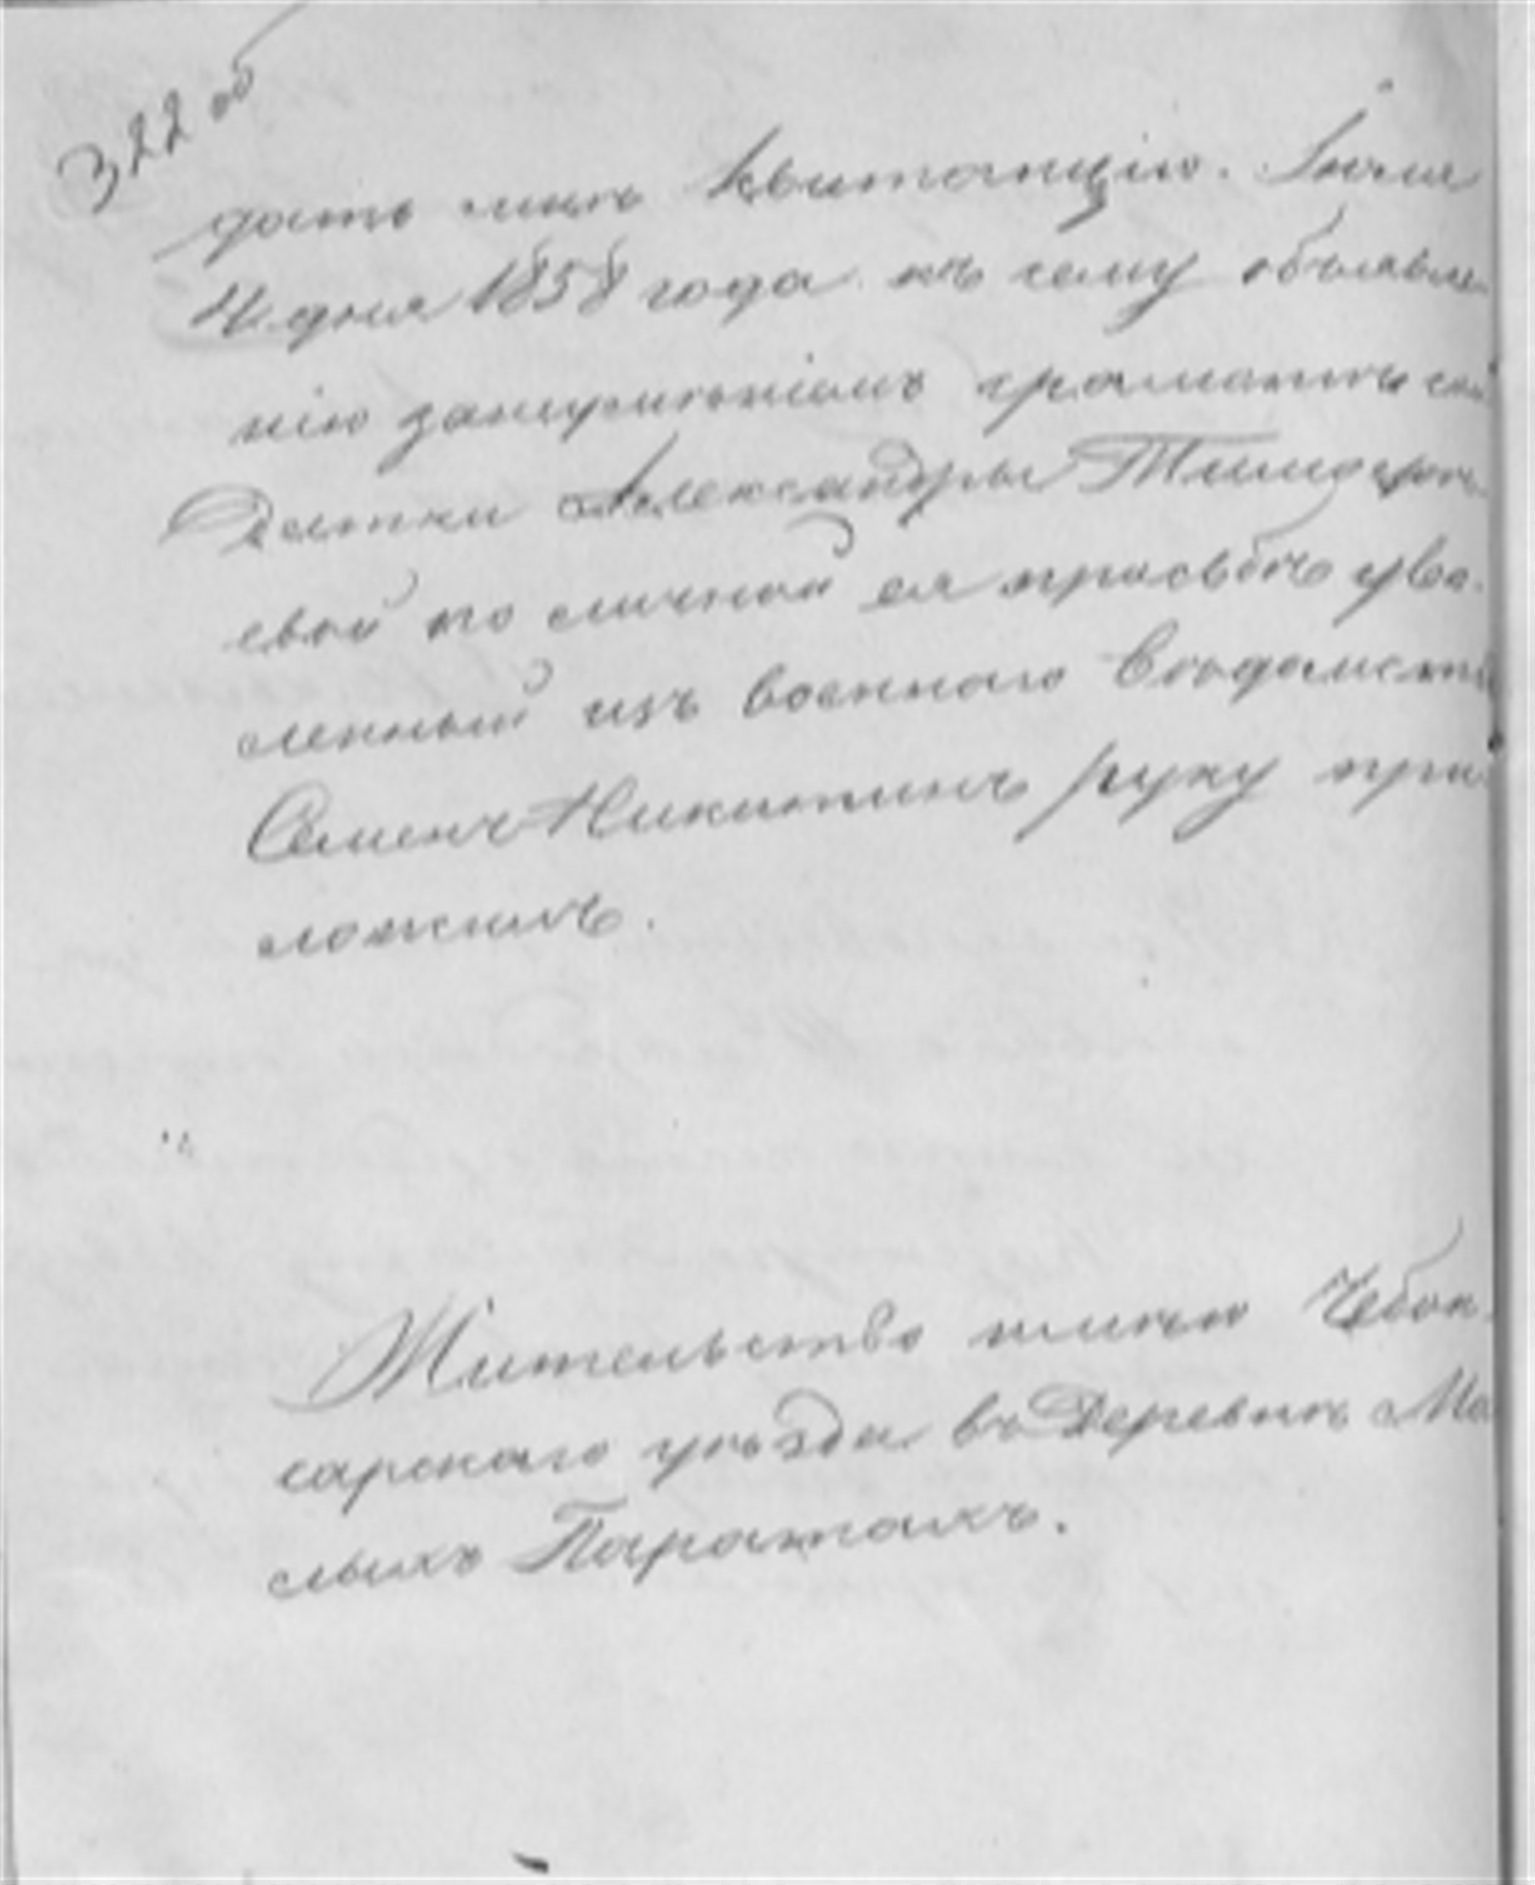 322 об
дать мнѣ квитанцію. Іюля
4 дня 1858 года къ сему объявле-
нію за неумѣніемъ грамотѣ сол-
датки Александры Тимофѣе-
евой по личной ея прозьбѣ уво-
ленный изъ военнаго вѣдомства
Семенъ Никитинъ руку при-
ложилъ.
Жительство имѣю Чебок-
сарскаго уѣзда въ деревнѣ Ма-
лыхъ Паратахъ.